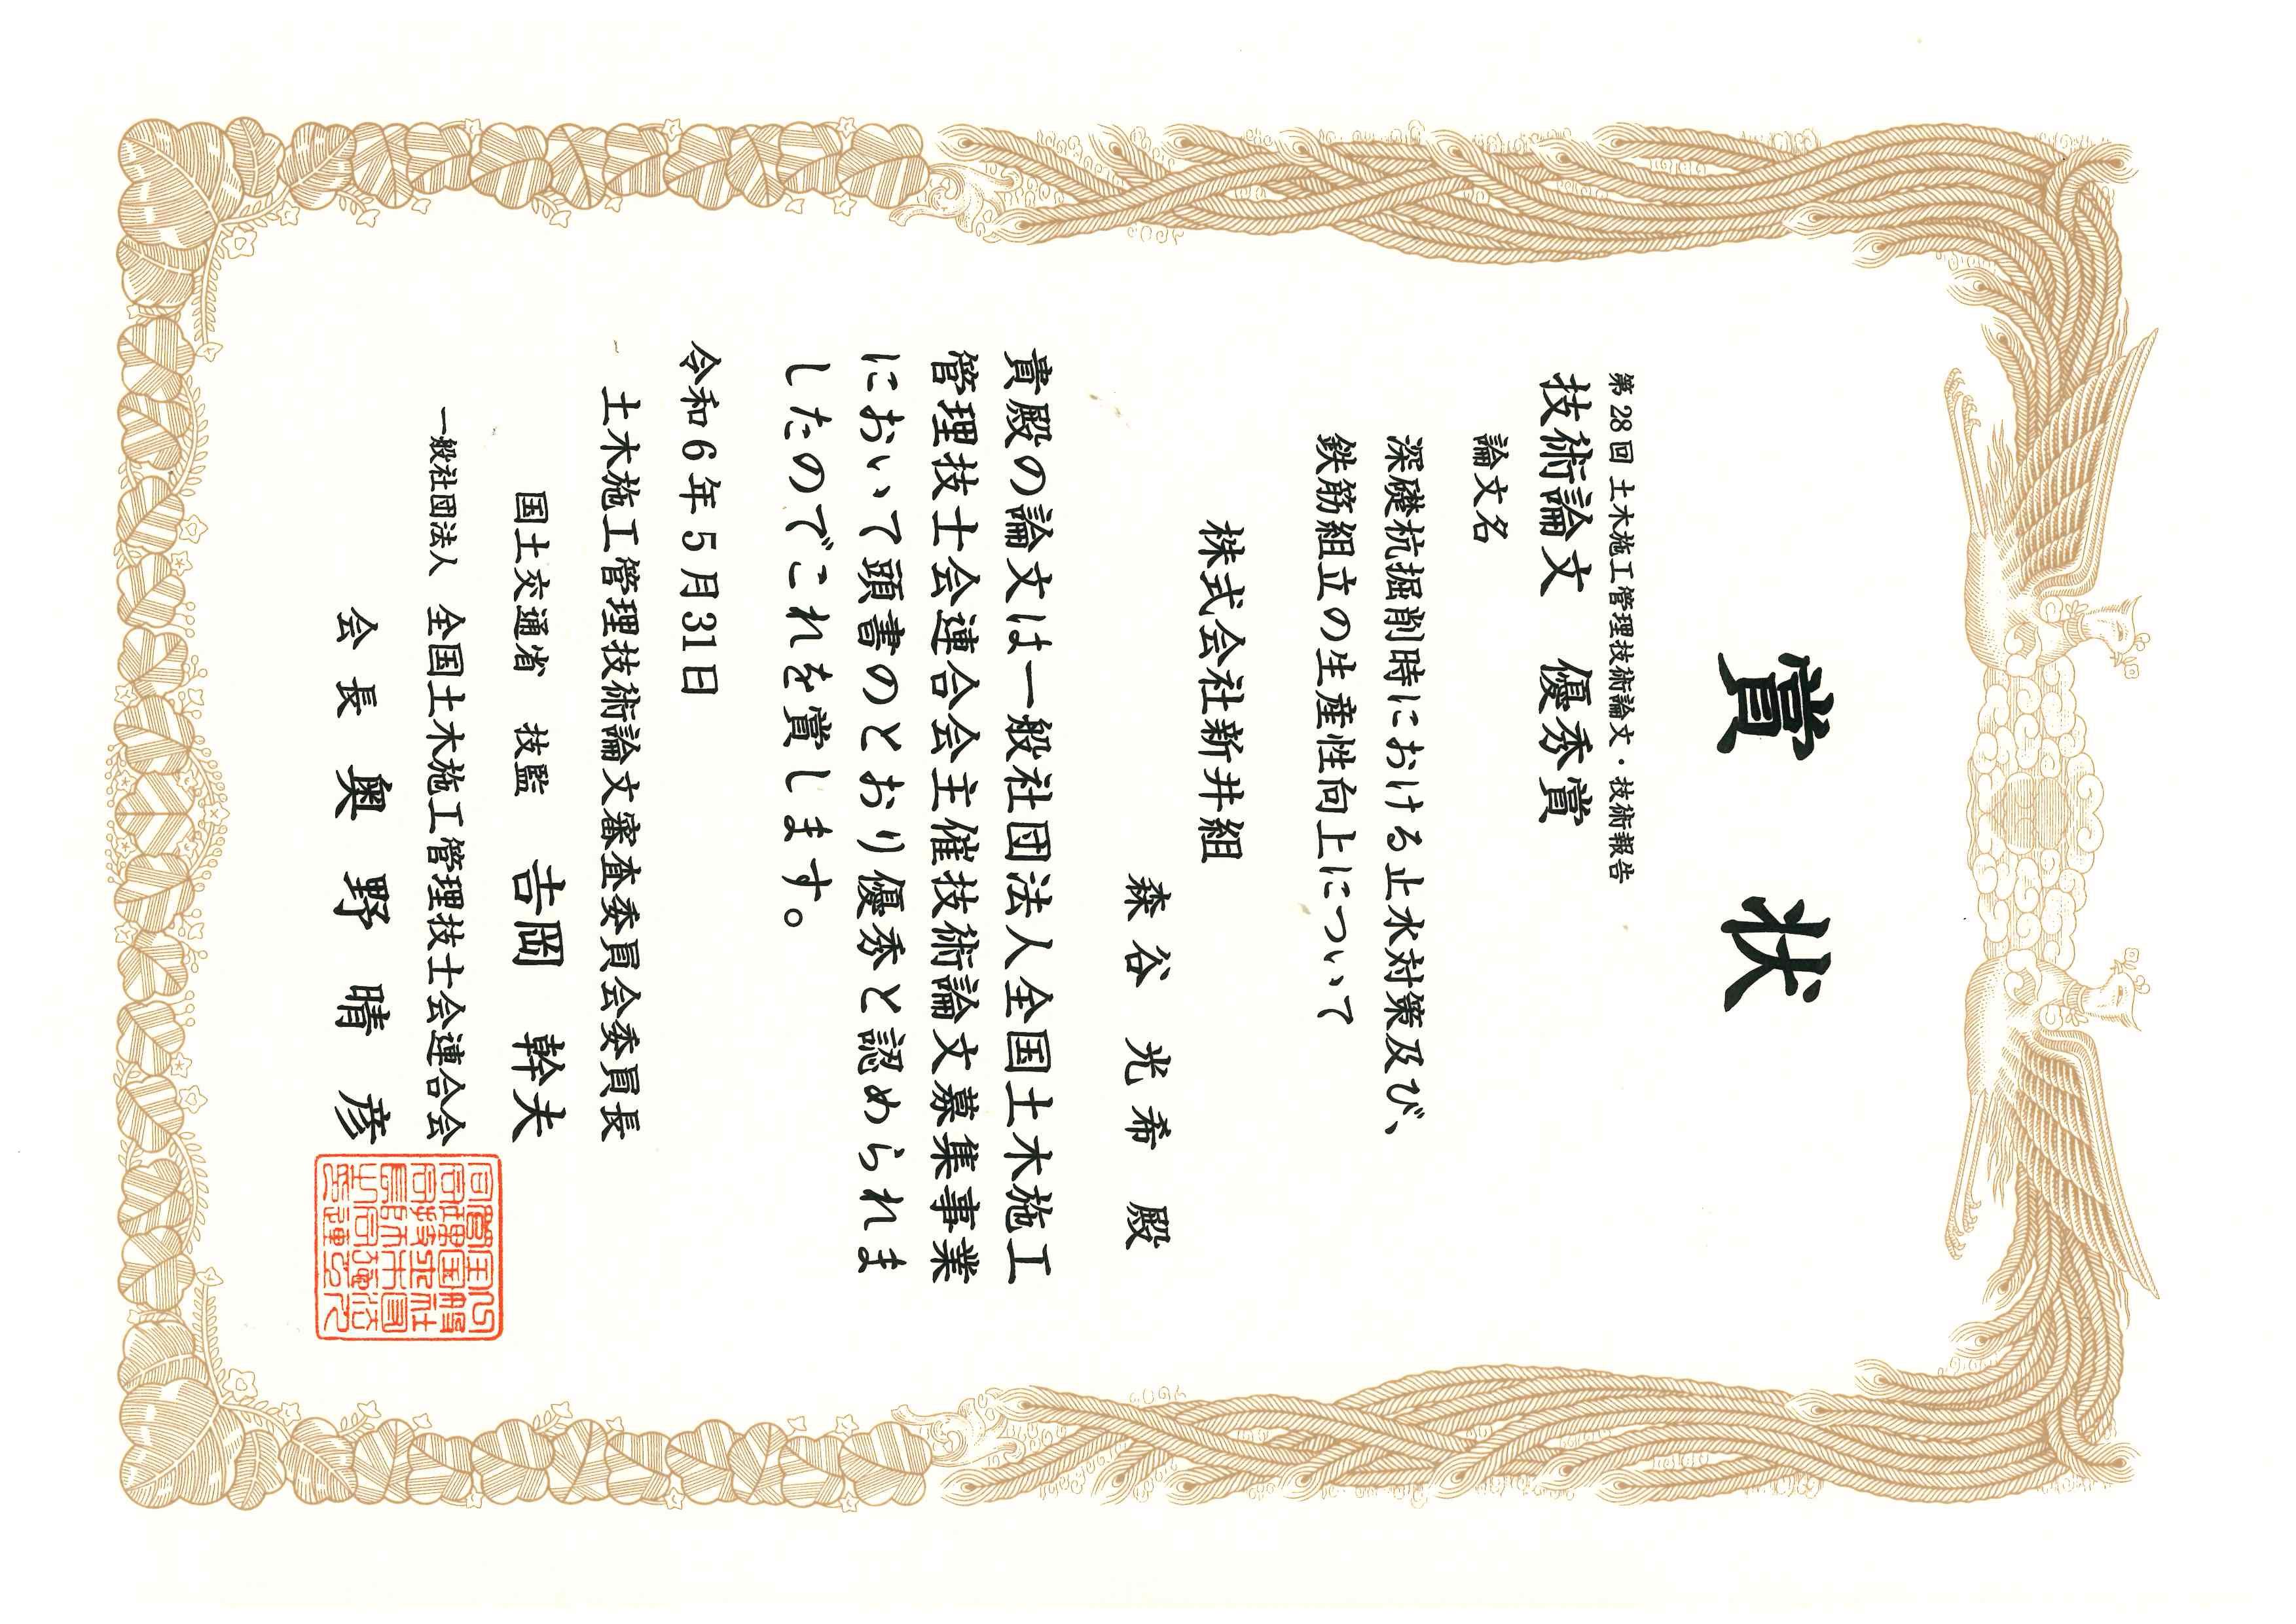 賞状
第28回 土木施工管理技術論文・技術報告
技術論文 優秀賞
論文名
深礎杭掘削時における止水対策及び、
鉄筋組立の生産性向上について
株式会社新井組
森谷 光希 殿
貴殿の論文は一般社団法人全国土木施工
管理技士会連合会主催技術論文募集事業
において頭書のとおり優秀と認められま
したのでこれを賞します。
令和6年5月31日
土木施工管理技術論文審査委員会委員長
国土交通省 技監 吉岡 幹夫
一般社団法人 全国土木施工管理技士会連合会
会長 奥野晴彦